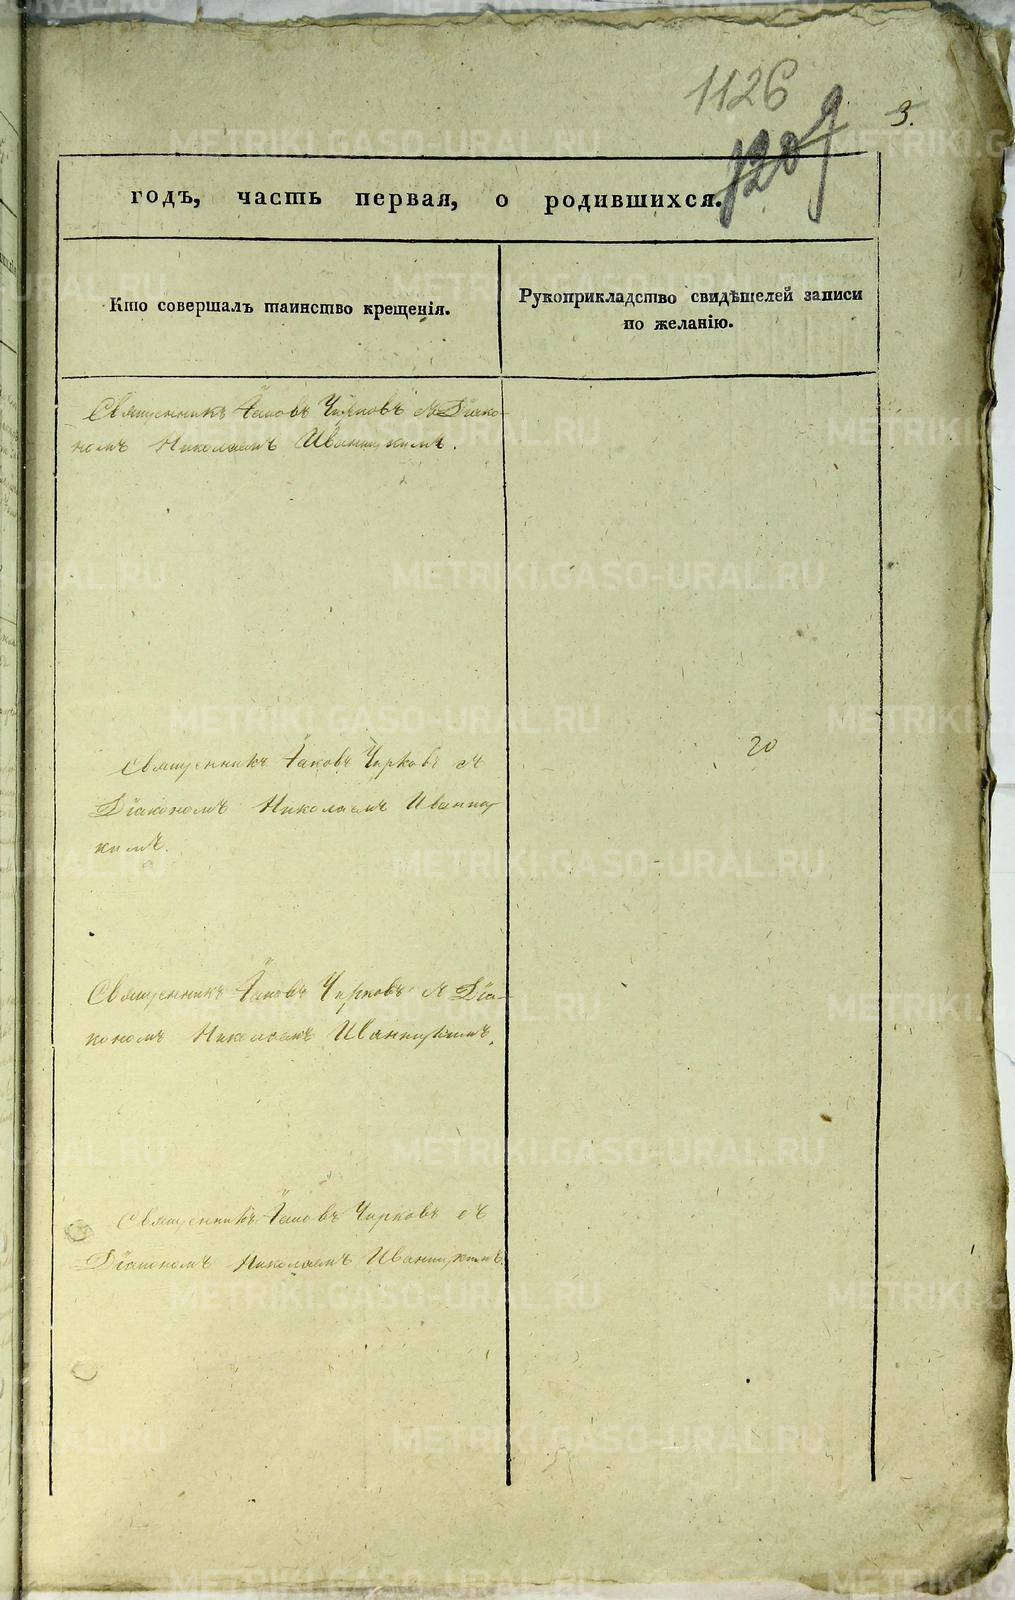 1126
3.
1207
годъ, часть первая, о родившихся.
Кто совершалъ таинство крещенія.
Рукоприкладство свидѣтелей записи
по желанію.
Священникъ Іаковъ Чирковъ съ Діако-
номъ Николаемъ Иваницкимъ.
Священникъ Іаковъ Чирковъ съ
Діакономъ Николаемъ Иваниц
кимъ.
20
Священникъ Іаковъ Чирковъ съ Діа-
кономъ Николаемъ Иваницкимъ.
Священникъ Іаковъ Чирковъ съ
Діакономъ Николаемъ Иваницкимъ.
METRIKI.GASO-URAL.RU